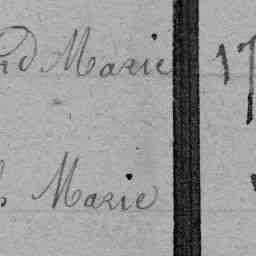 Marie 17
Marie